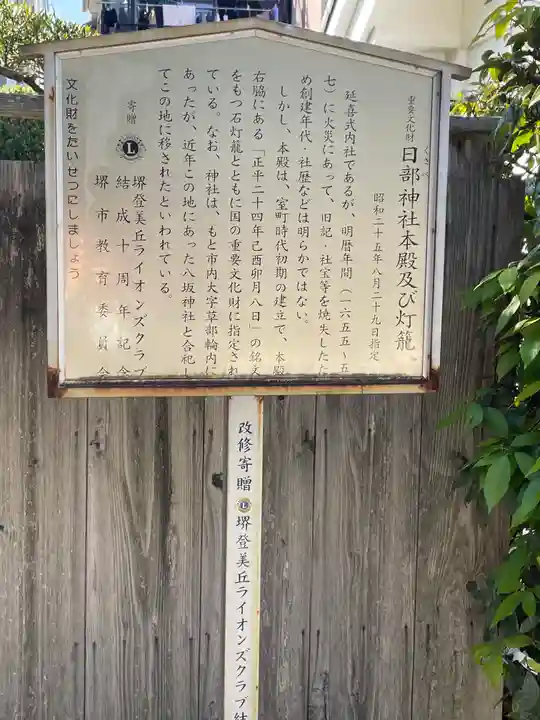 重要文化財 日部神社本殿及び灯籠
くさべ
昭和二十五年八月二十九日指定
延喜式内社であるが、明暦年間（一六五五～五
七）に火災にあって、旧記・社宝等を焼失したた
め創建年代・社歴などは明らかではない。
しかし、本殿は、室町時代初期の建立で、本殿
右脇にある「正平二十四年己酉卯月八日」の銘文
をもつ石灯籠とともに国の重要文化財に指定され
ている。なお、神社は、もと市内大字草部輪内に
あったが、近年この地にあった八坂神社と合祀し
てこの地に移されたといわれている。
寄贈 堺登美丘ライオンズクラブ
結成十周年記念
堺市教育委員会
文化財をたいせつにしましょう
改修寄贈 堺登美丘ライオンズクラブ結